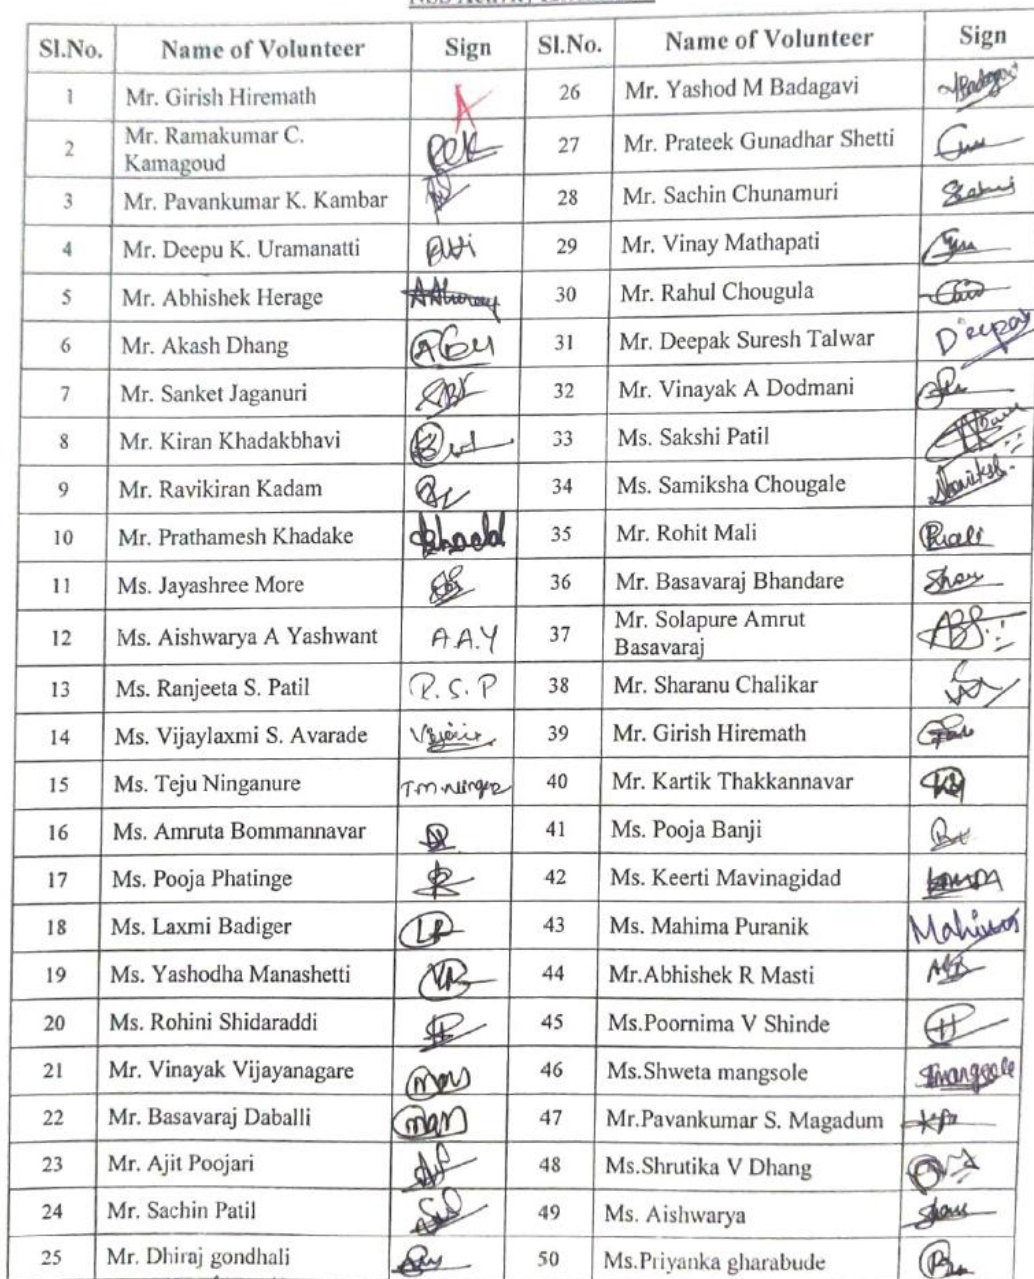 Sl.No. Name of Volunteer Sign Sl.No. Name of Volunteer Sign
1 Mr. Girish Hiremath A 26 Mr. Yashod M Badagavi
2 Mr. Ramakumar C.
Kamagoud 27 Mr. Prateek Gunadhar Shetti
3 Mr. Pavankumar K. Kambar 28 Mr. Sachin Chunamuri
4 Mr. Deepu K. Uramanatti 29 Mr. Vinay Mathapati
5 Mr. Abhishek Herage 30 Mr. Rahul Chougula
6 Mr. Akash Dhang 31 Mr. Deepak Suresh Talwar Deepak
7 Mr. Sanket Jaganuri 32 Mr. Vinayak A Dodmani
8 Mr. Kiran Khadakbhavi 33 Ms. Sakshi Patil
9 Mr. Ravikiran Kadam 34 Ms. Samiksha Chougale
10 Mr. Prathamesh Khadake 35 Mr. Rohit Mali
11 Ms. Jayashree More 36 Mr. Basavaraj Bhandare
12 Ms. Aishwarya A Yashwant A.A.Y 37 Mr. Solapure Amrut
Basavaraj
13 Ms. Ranjeeta S. Patil R.S.P 38 Mr. Sharanu Chalikar
14 Ms. Vijaylaxmi S. Avarade 39 Mr. Girish Hiremath
15 Ms. Teju Ninganure 40 Mr. Kartik Thakkannavar
16 Ms. Amruta Bommannavar 41 Ms. Pooja Banji
17 Ms. Pooja Phatinge 42 Ms. Keerti Mavinagidad
18 Ms. Laxmi Badiger 43 Ms. Mahima Puranik Mahima
19 Ms. Yashodha Manashetti 44 Mr.Abhishek R Masti
20 Ms. Rohini Shidaraddi 45 Ms.Poornima V Shinde
21 Mr. Vinayak Vijayanagare 46 Ms.Shweta mangsole
22 Mr. Basavaraj Daballi 47 Mr.Pavankumar S. Magadum
23 Mr. Ajit Poojari 48 Ms.Shrutika V Dhang
24 Mr. Sachin Patil 49 Ms. Aishwarya
25 Mr. Dhiraj gondhali 50 Ms.Priyanka gharabude